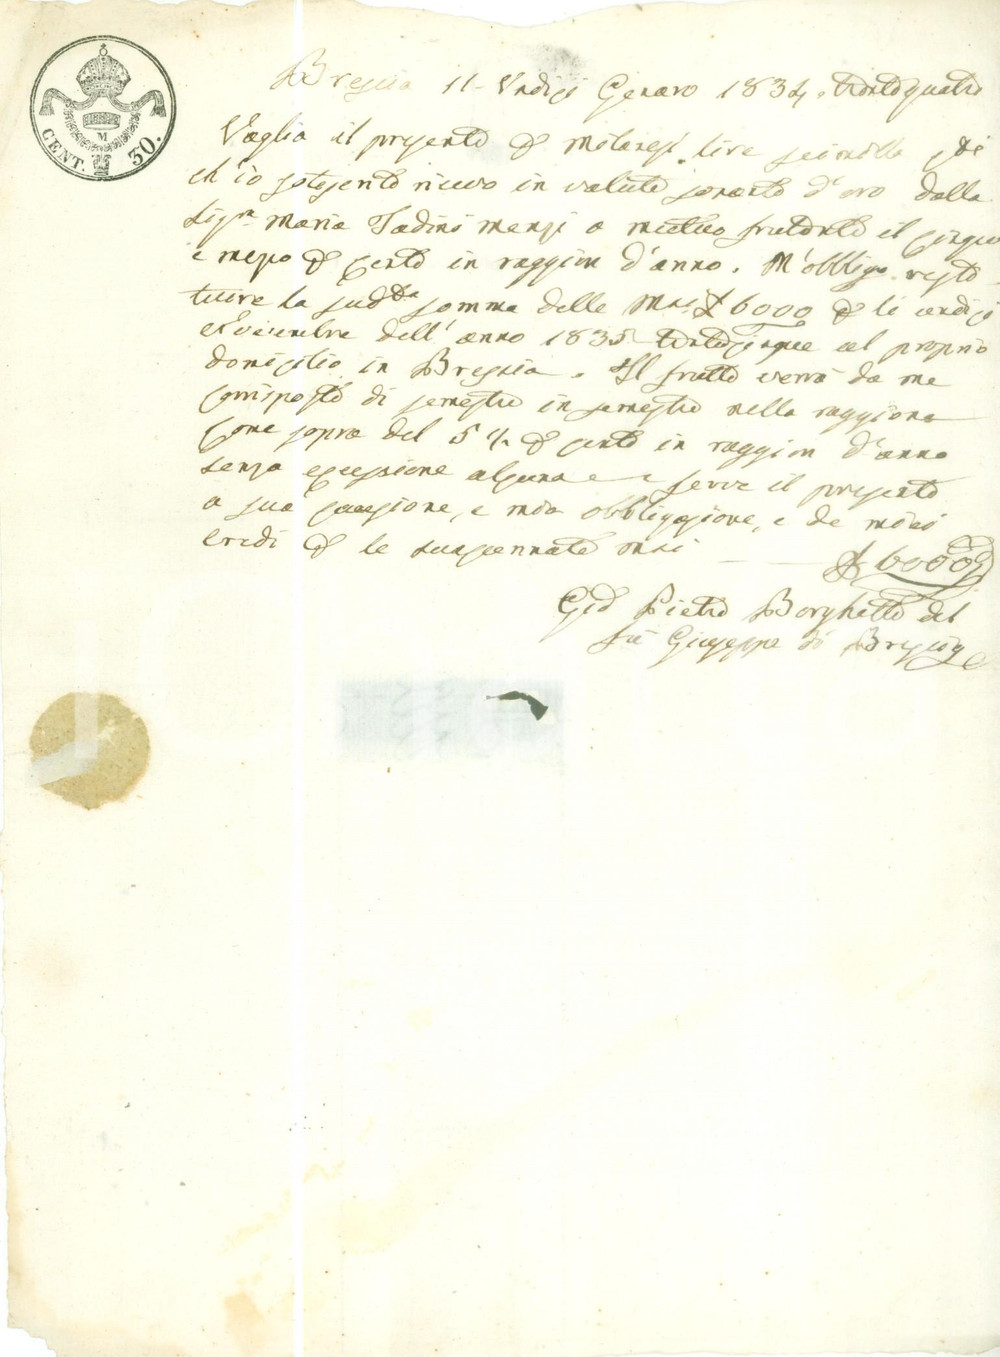 CENT. 30.
M
Brescia 11 - Undici Genaro 1834. trentaquatro
Vaglia il presente per Milanesi lire seimilla che
ch'io sotoscrito ricevo in valuta sonante d'oro dalla
Sigra Maria Tadini Manzi a mutuo frutante il cinque
e mezo per cento in raggion d'anno. M'obbligo resti-
tuire la suddta somma delle Mnsi £ 6000 per li undici
Novembre dell'anno 1835 trentacinque al proprio
domicilio in Brescia. Il frutto verrà da me
corrisposto di semestre in semestre nella raggione
come sopra del 5 ½ per cento in raggion d'anno
senza ecessione alcuna e serve il presente
a sua cauzione, e mia obbligazione, e de miei
eredi per le suaccennate Mnsi £ 6000
Gio Pietro Borghetti del
fu Giuseppe di Brescia